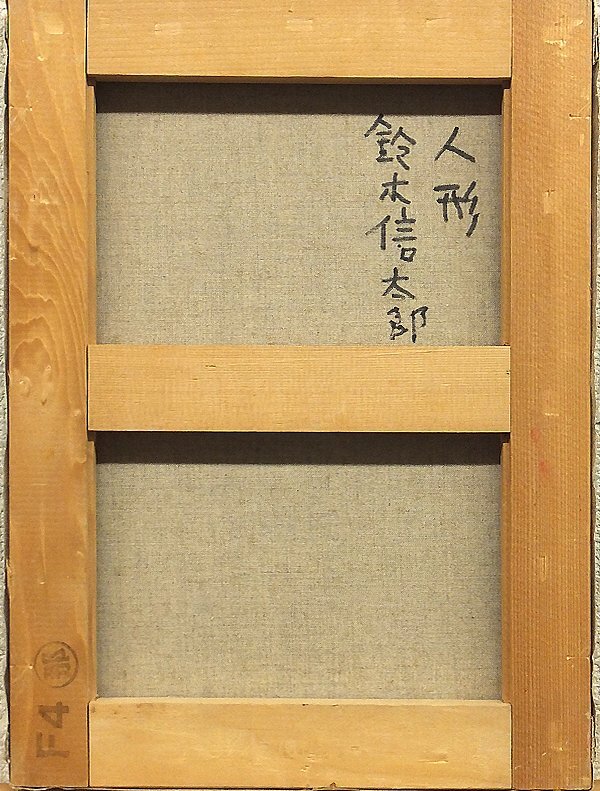 人形
鈴木信太郎
F4